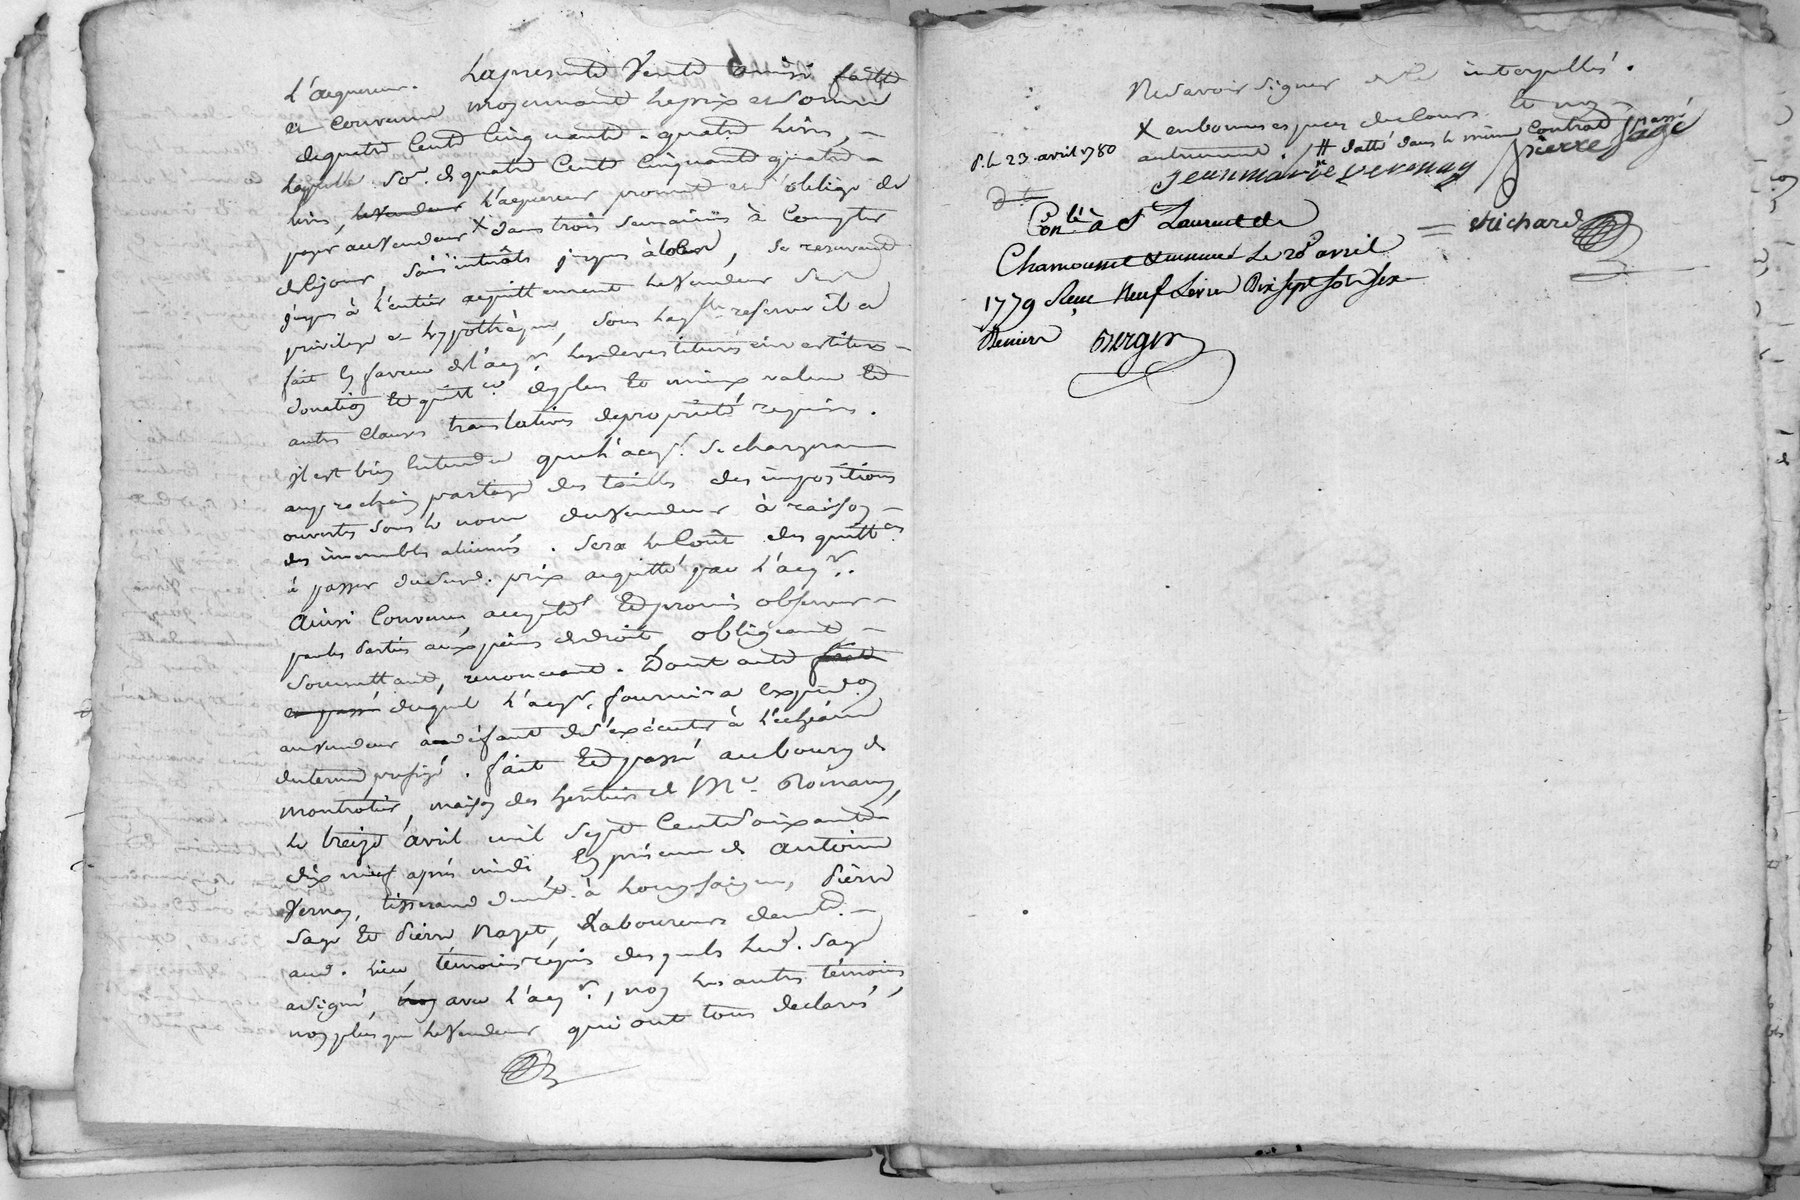 L'acquereur. La presente Vente ainsi faitte
et convenue moyennant le prix et somme
de quatre Cents Cinquante-quatre Livres, -
laquelle so.e de quatre Cents Cinquante quatre -
livres, le vendeur L'acquereur promet et s'oblige de
payer au vendeur X dans trois semaines à Compter
de ce jour, sans interêts jusques alors, se reservant
jusques à l'entier acquittement le Vendeur ses
privilege et hypothèque, sous laq.lle reserve il a
fait en faveur de l'acq.r les devestitures investitures -
donation et quitt.ce de plus et mieux value et
autres clauses translatives de propriété requises.
il est bien Entendu que L'acq.r se chargera
au prochain partage des tailles des impositions
ouvertes sous le nom du vendeur à raison -
des immeubles alienés. Sera le Coût des quitt.ces
à passer du susd. prix acquitté par L'acq.r.
Ainsi Convenu, accepté et promis observer -
par les parties aux peines de droit, obligeant -
soumettant, renonceant. Dont acte fait
et passé duquel L'acq.r fournira expéd.on
au vendeur à défaut de s'exécuter à l'échéance
du terme prefigé. fait et passé au bourg de
montrotier, maison des heritiers de M.e Romany,
le treize avril mil sept Cent soixante
dix neuf après midi En présence de antoine
Vernay, tisserand dem.t à Longessaigne, Pierre
Sage et Pierre Nazet, Laboureurs dem.t -
aud. lieu témoins requis desquels led. Sage
a signé avec L'acq.r, non les autres témoins
non plus que le Vendeur qui ont tous declarés
Ne scavoir signer de ce interpellés.
X en bonnes especes du cours et non
autrement. # datté dans le même Contrat passé
p. le 23 avril 1780
Jean marie Vernay
pierre Sage
Con.lé à S.t Laurent de
Chamousset Le 26 avril
= Richard
1779 Reçu Neuf Livres Dix sept sols six
Deniers Berger